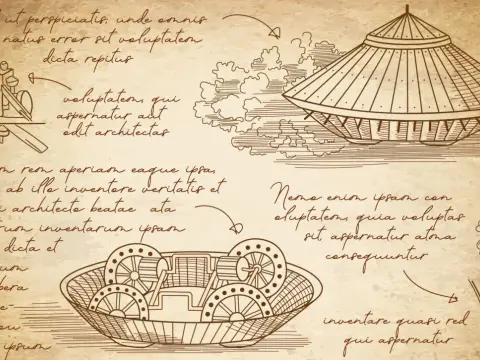 ut perspiciatis, unde omnis
natus error sit voluptatem
dicta repitus
voluptatem, qui
aspernatur aut
odit architectas
rem aperiam eaque ipsa,
ab illo inventore veritatis et
architecto beatae ata
inventarum ipsam
dicta et
Nemo enim ipsam con
voluptas
sit, aspernatur atma
consequuntur
inventare quasi red
qui aspernatur
ipsum